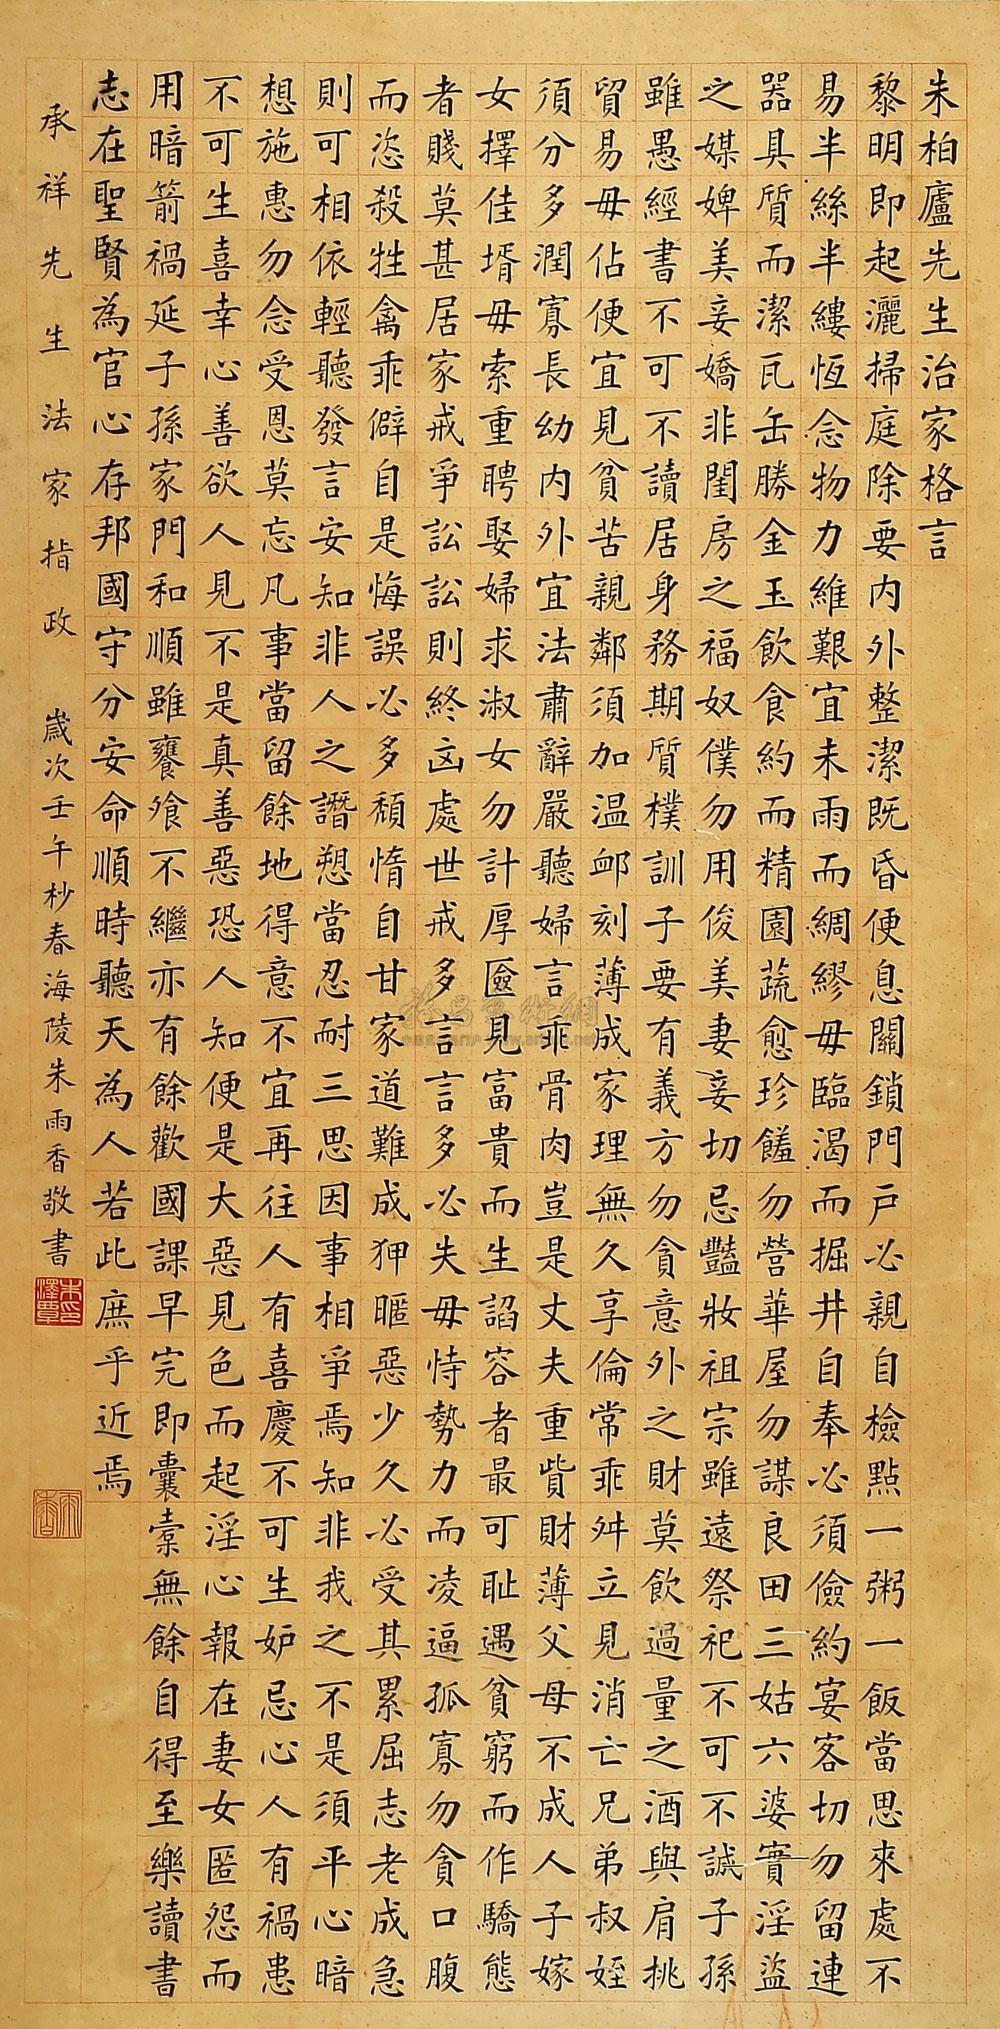 朱柏廬先生治家格言
黎明即起灑掃庭除要内外整潔既昏便息關鎖門戶必親自檢點一粥一飯當思來處不
易半絲半縷恆念物力維艱宜未雨而綢繆毋臨渴而掘井自奉必須儉約宴客切勿留連
器具質而潔瓦缶勝金玉飲食約而精園蔬愈珍饈勿營華屋勿謀良田三姑六婆實淫盜
之媒婢美妾嬌非閨房之福奴僕勿用俊美妻妾切忌豔妝祖宗雖遠祭祀不可不誠子孫
雖愚經書不可不讀居身務期質樸訓子要有義方勿貪意外之財莫飲過量之酒與肩挑
貿易毋佔便宜見貧苦親鄰須加温卹刻薄成家理無久享倫常乖舛立見消亡兄弟叔姪
須分多潤寡長幼内外宜法肅辭嚴聽婦言乖骨肉豈是丈夫重貲財薄父母不成人子嫁
女擇佳壻毋索重聘娶婦求淑女勿計厚匳見富貴而生諂容者最可恥遇貧窮而作驕態
者賤莫甚居家戒爭訟訟則終凶處世戒多言言多必失毋恃勢力而凌逼孤寡勿貪口腹
而恣殺牲禽乖僻自是悔誤必多頹惰自甘家道難成狎暱惡少久必受其累屈志老成急
則可相依輕聽發言安知非人之譖愬當忍耐三思因事相爭焉知非我之不是須平心暗
想施惠勿念受恩莫忘凡事當留餘地得意不宜再往人有喜慶不可生妒忌心人有禍患
不可生喜幸心善欲人見不是真善惡恐人知便是大惡見色而起淫心報在妻女匿怨而
用暗箭禍延子孫家門和順雖饔飧不繼亦有餘歡國課早完即囊橐無餘自得至樂讀書
志在聖賢為官心存邦國守分安命順時聽天為人若此庶乎近焉
承祥先生法家指政
歲次壬午杪春海陵朱雨香敬書